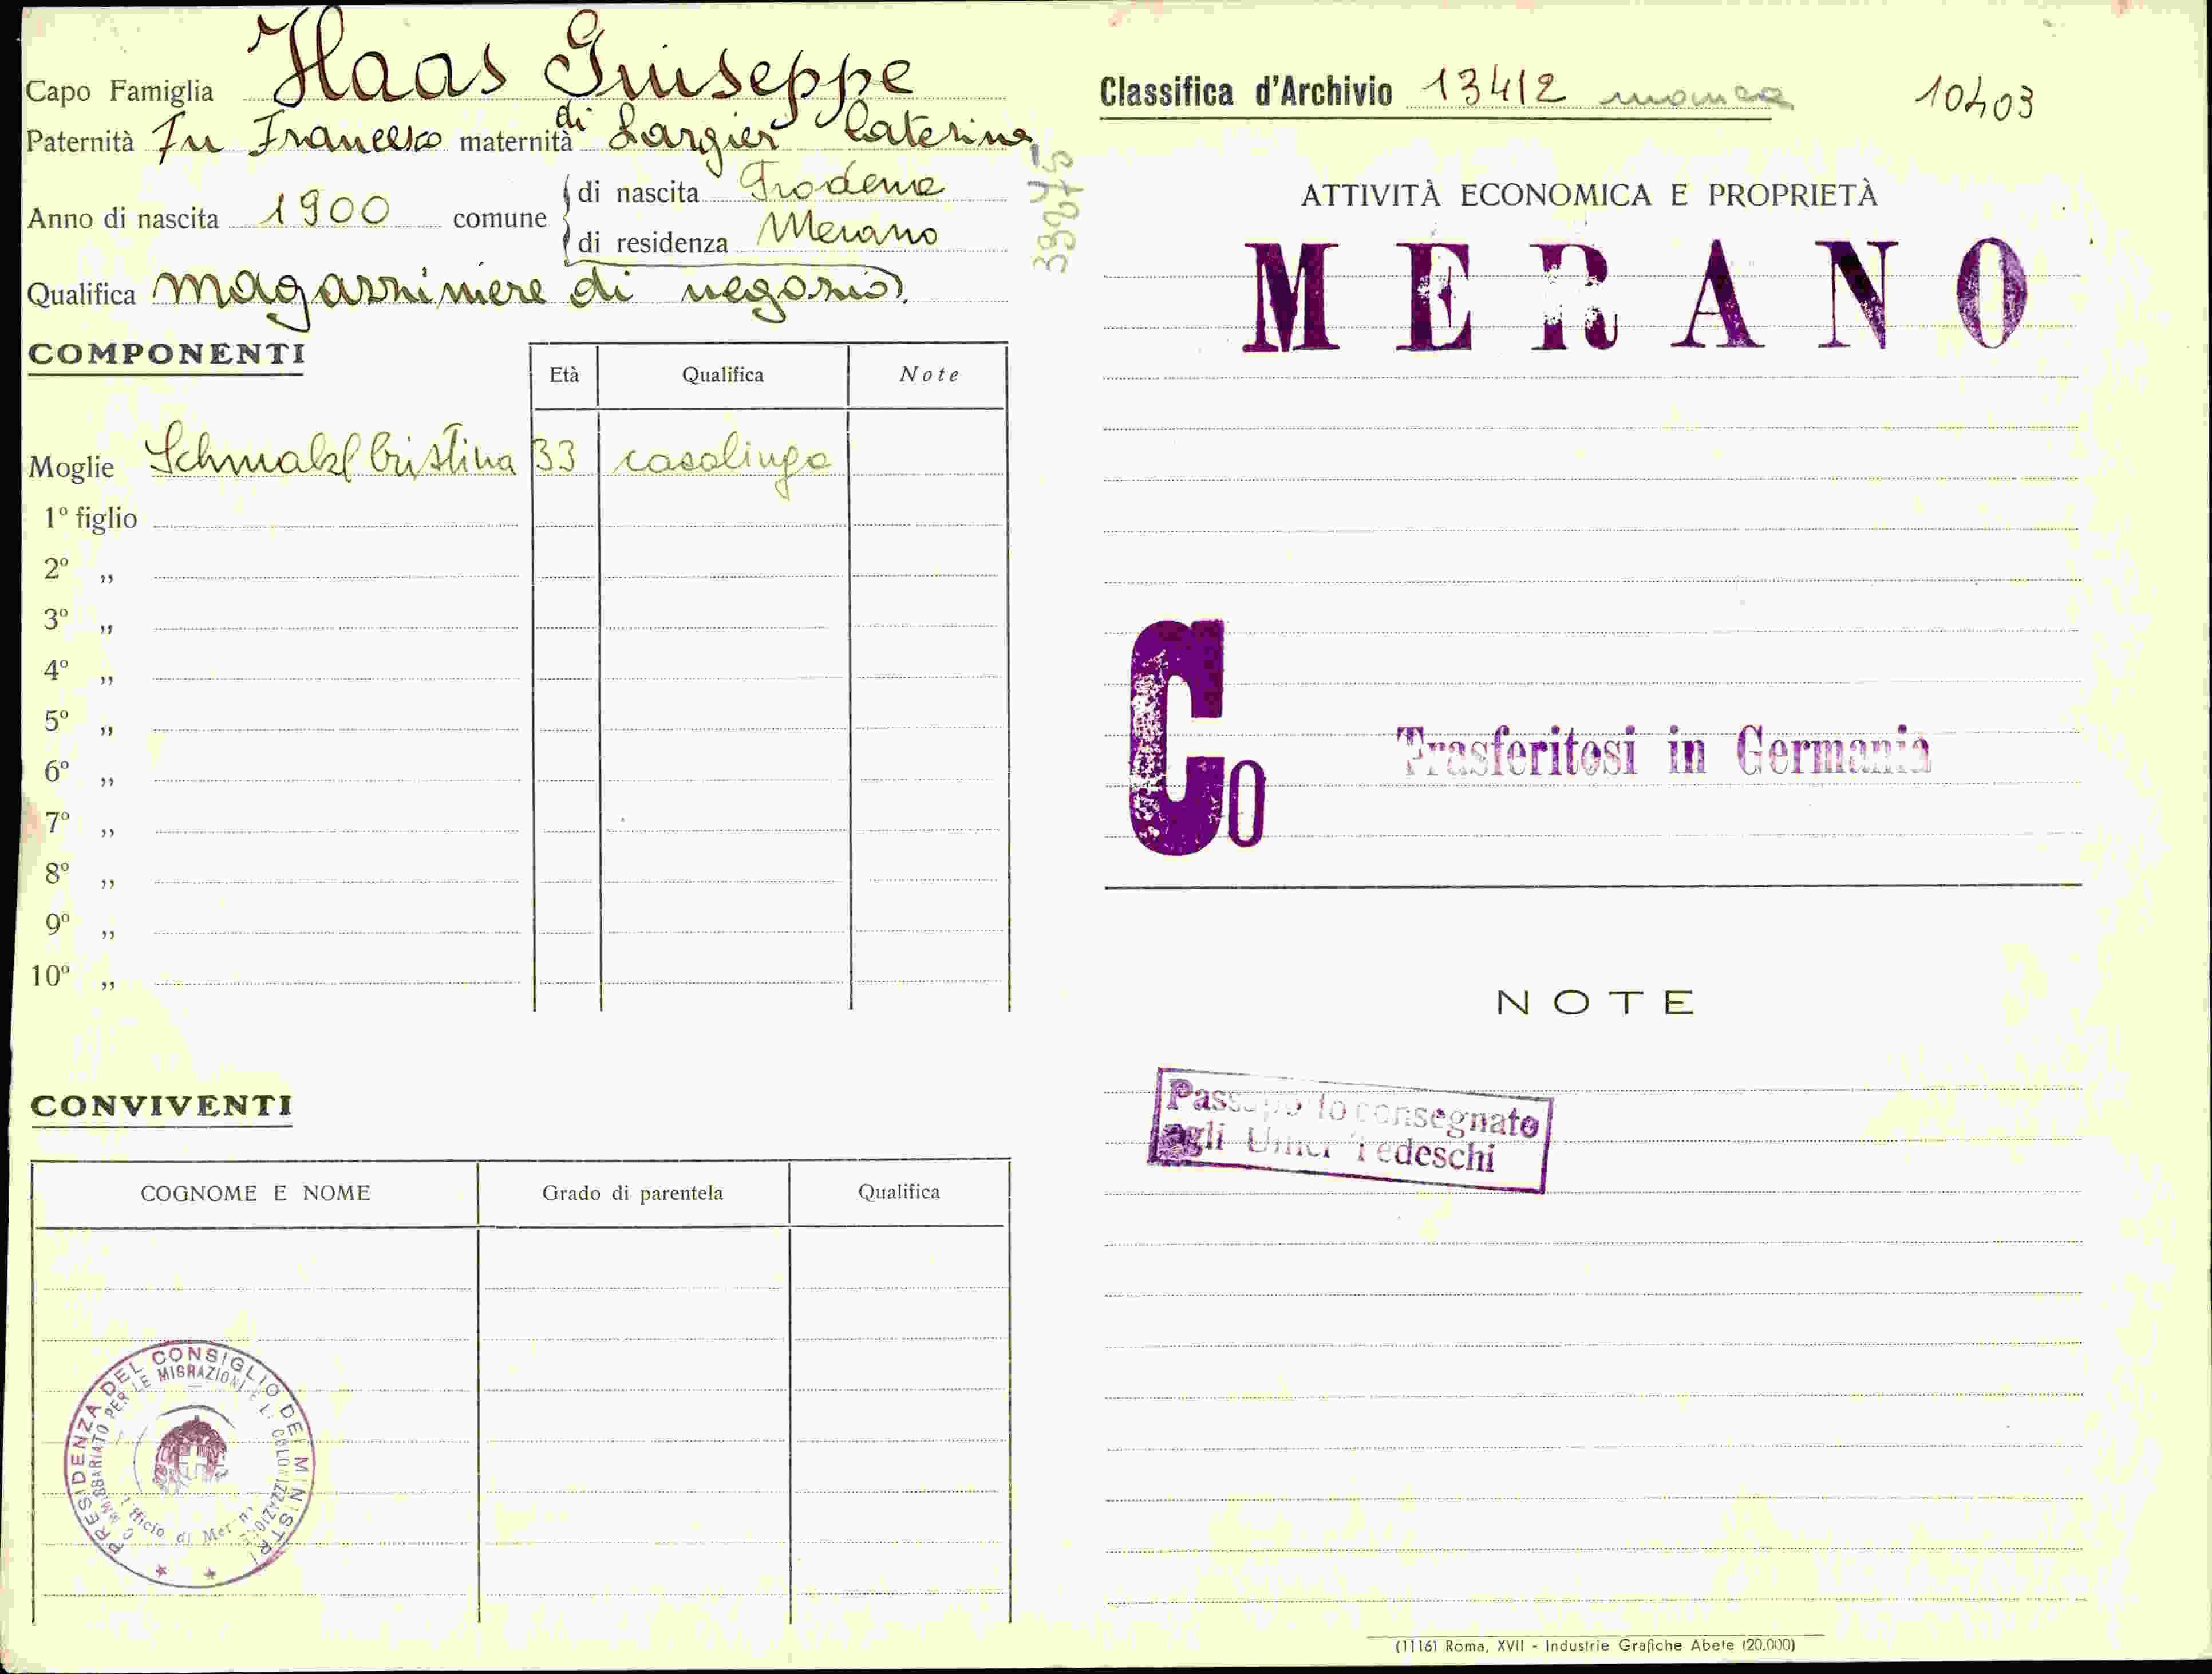 Capo Famiglia Haas Giuseppe
Paternità Fu Francesco maternità di Largier Caterina
Anno di nascita 1900 comune
di nascita Trodena
di residenza Merano
Qualifica magazziniere di negozio.
COMPONENTI
Età Qualifica Note
Moglie Schmalzl Cristina 33 casalinga
1º figlio
2º „
3º „
4º „
5º „
6º „
7º „
8º „
9º „
10º „
CONVIVENTI
COGNOME E NOME Grado di parentela Qualifica
PRESIDENZA DEL CONSIGLIO DEI MINISTRI
COMMISSARIATO PER LE MIGRAZIONI E L. COLONIZZAZIONE
Ufficio di Merano
39875
Classifica d'Archivio 13412 10403
ATTIVITÀ ECONOMICA E PROPRIETÀ
MERANO
Co
Trasferitosi in Germania
NOTE
Passaporto consegnato
agli Uffici Tedeschi
(1116) Roma, XVII - Industrie Grafiche Abete (20.000)